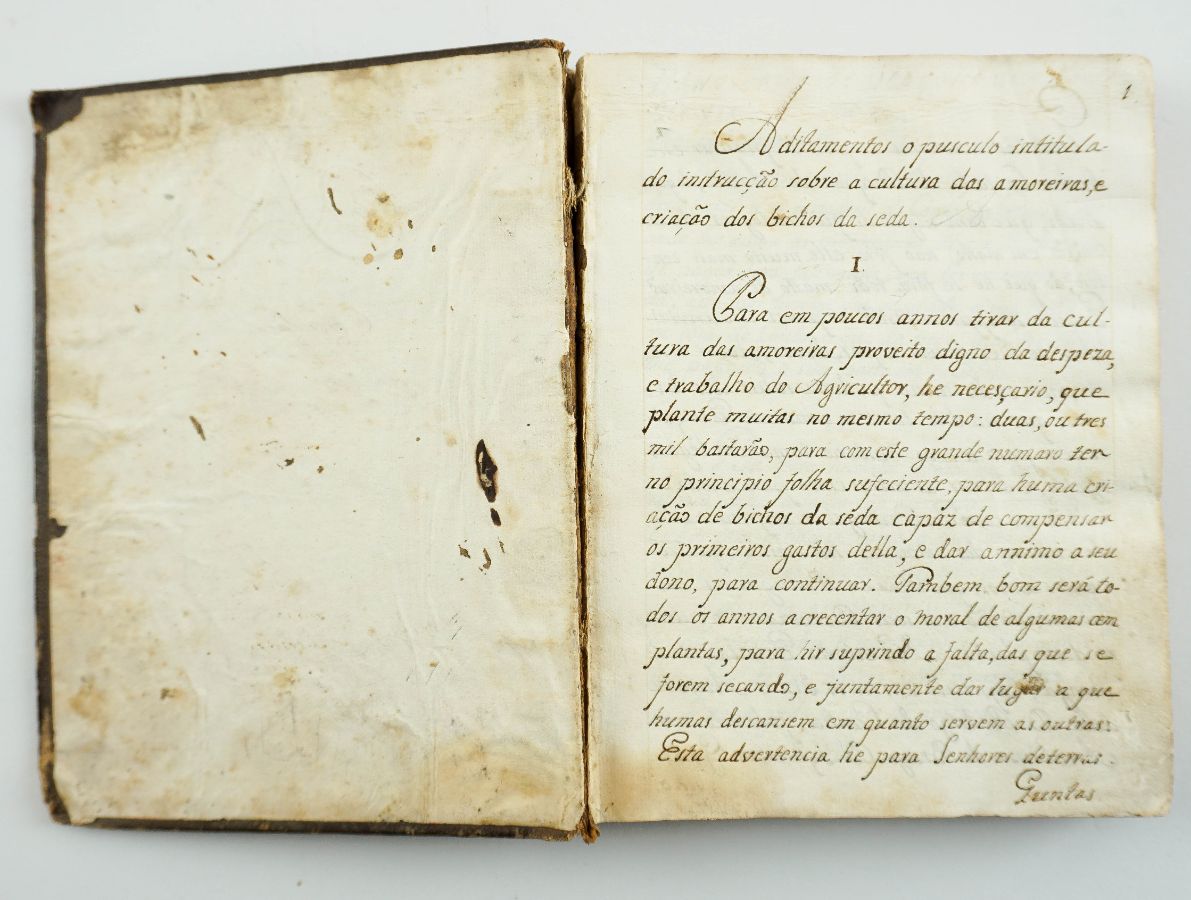 1
Aditamentos opusculo intitula-
do instrucção sobre a cultura das amoreiras, e
criação dos bichos da seda.
I
Para em poucos annos tirar da cul-
tura das amoreiras proveito digno da despeza,
e trabalho do Agricultor, he necesçario, que
plante muitas no mesmo tempo: duas, ou tres
mil bastarão, para com este grande numaro ter
no principio folha sufeciente, para huma cri-
ação de bichos da seda capaz de compensar
os primeiros gastos della, e dar annimo a seu
dono, para continuar. Tambem bom será to-
dos os annos acrecentar o moral de algumas cem
plantas, para hir suprindo a falta, das que se
forem secando, e juntamente dar lugar a que
humas descansem em quanto servem as outras:
Esta advertencia he para Senhores de terras.